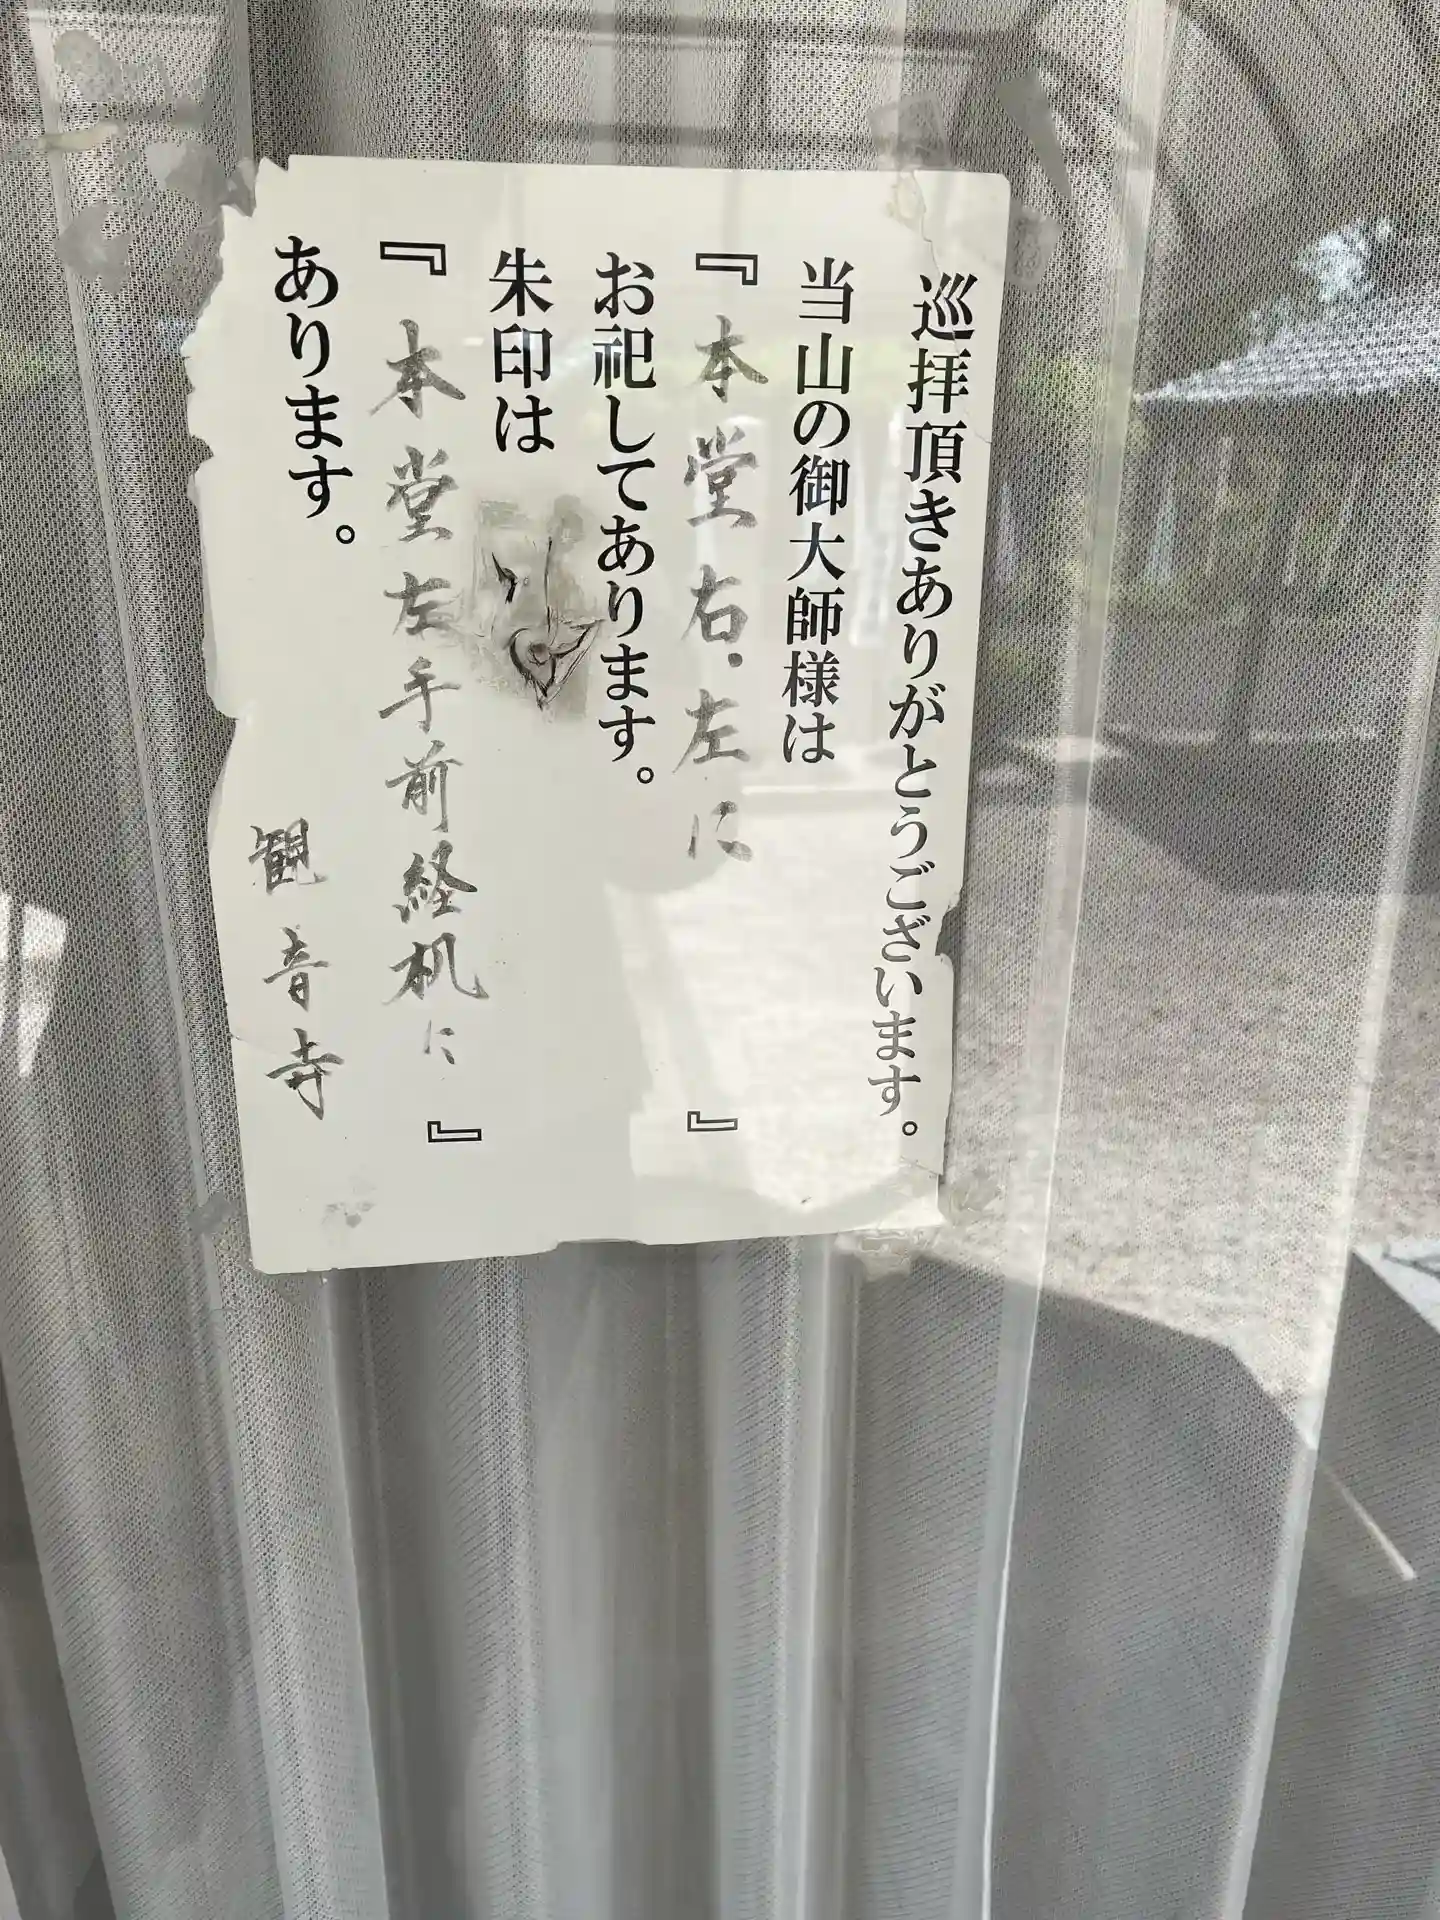 巡拝頂きありがとうございます。
当山の御大師様は
『本堂右・左に』
お祀してあります。
朱印は
『本堂左手前経机に』
あります。
観音寺